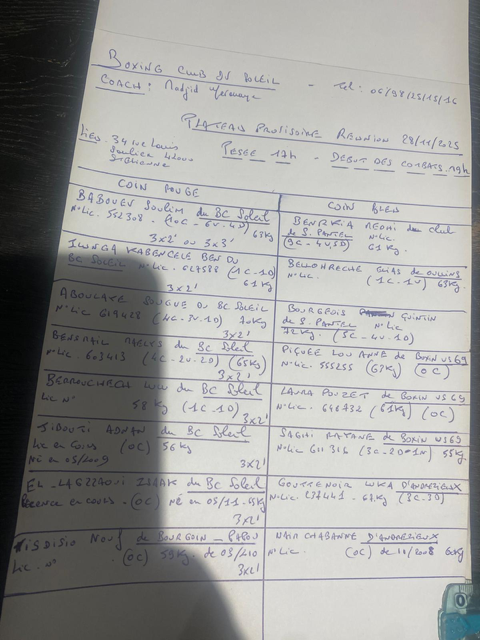 BOXING CLUB DU SOLEIL - Tel: 06/98/25/15/16
COACH: Madjid
PLATEAU PROVISOIRE REUNION 29/11/2025
LIEU. 34 rue Louis
Soulier 42000
St Etienne
PESEE 17h - DEBUT DES COMBATS 19h
COIN ROUGE
COIN BLEU
BABOUEV SOULIM du BC Soleil
N°Lic. 552308 - 63Kg
3x2' ou 3x3'
BENRKIA MEDHI du club
de S. PANTEL N°Lic
(9C - 4V, 5D) 61Kg.
ILUNGA KABENCELE BEN DU
BC SOLEIL N°Lic. (1C-1D)
61Kg
3x2'
BELLOHRECHE de OULLINS
N°Lic. (1C-1V) 63Kg
ABOULAYE DU BC SOLEIL
N°Lic 619428 (4C-3V.1D) 70Kg
3x2'
BOURGEOIS QUINTIN
de S. PANTEL N°Lic
72Kg. (5C-4V.1D)
BENSMAIL du BC Soleil
N°Lic. 603413 (4C-2V-2D) (65Kg)
3x2'
PIQUÉE LOU ANNE de BOXIN VS 69
N°Lic. 555255 (63Kg) (OC)
du BC Soleil
Lic N° 58Kg (1C.1D)
3x2'
LAURA POUZET de BOXIN VS 69
N°Lic. 646732 (61Kg) (OC)
JIBOUTI ADNAN du BC Soleil
Lic en Cours (OC) 56Kg
Né en 05/2009
3x2'
SAGHI RAYANE de BOXIN VS 69
N°Lic 611316 55Kg
EL-LAGZAOUI ISAAK du BC Soleil
Licence en cours - (OC) Né en 05/11-55Kg
3x2'
GOUTTENOIR LUKA D'ANDREZIEUX
N°Lic 637441 - 67Kg (3C-3D)
de BOURGOIN
Lic. N° (OC) 59Kg. de 05/2010
3x2'
NAIM CHABANNE D'ANDREZIEUX
N°Lic. (OC) de 10/2008 61Kg